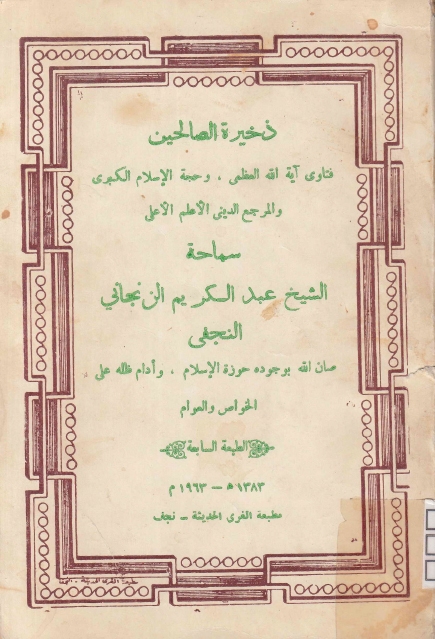 ذخيرة الصالحين
فتاوى آية الله العظمى ، وحجة الإسلام الكبرى
والمرجع الديني الأعلم الأعلى
سماحة
الشيخ عبد الكريم الزنجاني
النجفي
صان الله بوجوده حوزة الإسلام ، وأدام ظله على
الخواص والعوام
الطبعة السابعة
١٣٨٣ هـ – ١٩٦٣ م
مطبعة الغرى الحديثة – نجف
مطبعة الغرى الحديثة - النجف